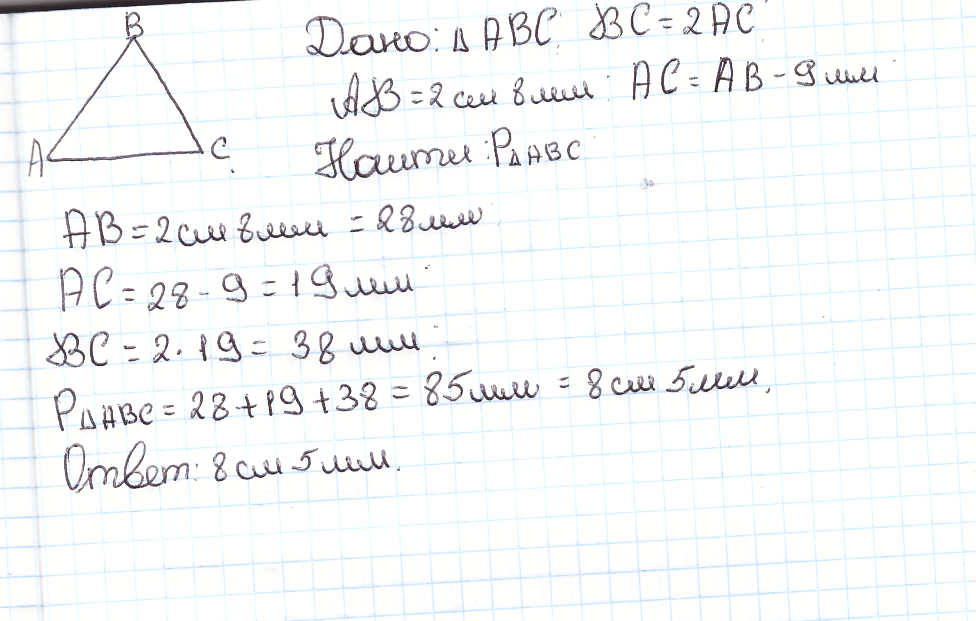 B
Дано: Δ ABC. BC = 2AC
AB = 2 см 8 мм. AC = AB - 9 мм
A C.
Найти: PΔABC
AB = 2 см 8 мм = 28 мм
AC = 28 - 9 = 19 мм
BC = 2 · 19 = 38 мм.
PΔABC = 28 + 19 + 38 = 85 мм = 8 см 5 мм.
Ответ: 8 см 5 мм.